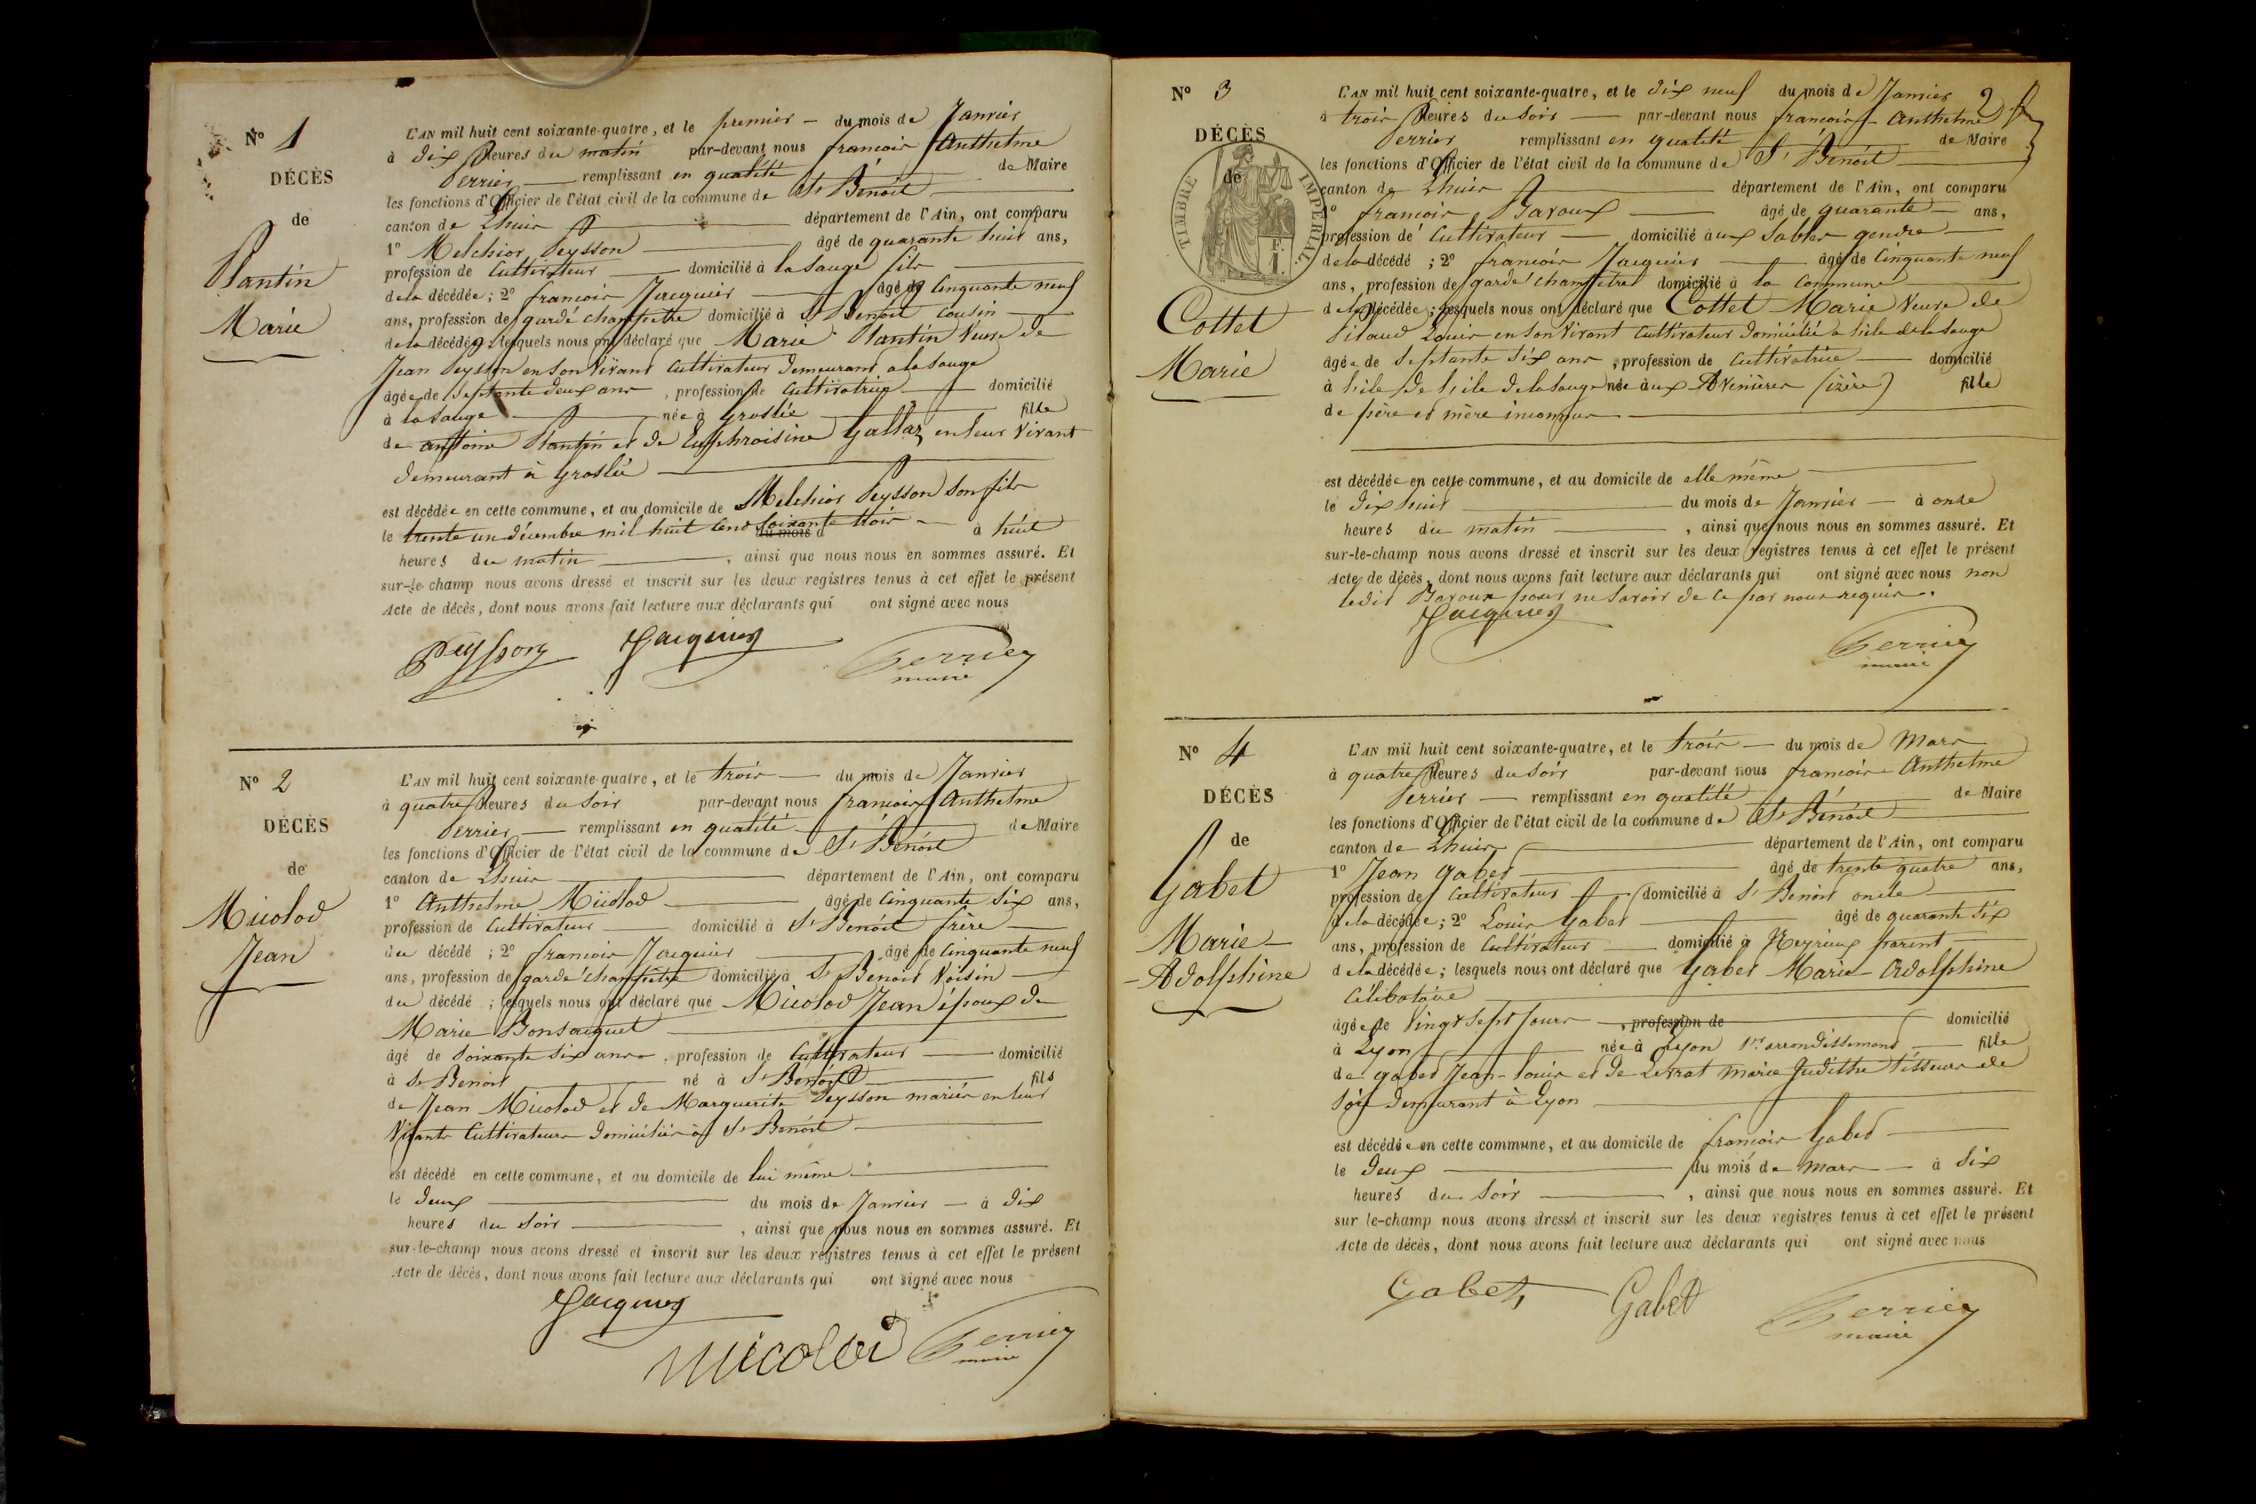 N° 1
DÉCÈS
de
Plantin
Marie
L'AN mil huit cent soixante-quatre, et le premier — du mois de Janvier
à dix heures du matin par-devant nous françois Anthelme
Perrier — remplissant en qualité de Maire
les fonctions d'Officier de l'état civil de la commune de St Benoit
canton de Lhuis département de l'Ain, ont comparu
1° Melchior Peysson âgé de quarante huit ans,
profession de Cultivateur domicilié à la Sauge fils
de la décédée ; 2° françois Jacquier âgé de Cinquante neuf
ans, profession de garde champêtre domicilié à St Benoit Cousin
de la décédée lesquels nous ont déclaré que Marie Plantin Veuve de
Jean Peysson en son vivant Cultivateur demeurant a la Sauge
âgée de Septante deux ans , profession de Cultivatrice domicilié
à la Sauge née à Groslée fille
de antoine Plantin et de Euphroisine Gallaz en leur vivant
demeurant à Groslée
est décédée en cette commune, et au domicile de Melchior Peysson son fils
le trente un décembre mil huit cent soixante trois du mois d à huit
heures du matin , ainsi que nous nous en sommes assuré. Et
sur-le-champ nous avons dressé et inscrit sur les deux registres tenus à cet effet le présent
Acte de décès, dont nous avons fait lecture aux déclarants qui ont signé avec nous
Peysson Jacquier Perrier
maire
N° 2
DÉCÈS
de
Micolod
Jean
L'AN mil huit cent soixante-quatre, et le trois — du mois de Janvier
à quatre heures du soir par-devant nous françois Anthelme
Perrier — remplissant en qualité de Maire
les fonctions d'Officier de l'état civil de la commune de St Benoit
canton de Lhuis département de l'Ain, ont comparu
1° Anthelme Micolod âgé de Cinquante six ans,
profession de Cultivateur domicilié à St Benoit frère
du décédé ; 2° françois Jacquier âgé de Cinquante neuf
ans, profession de garde champêtre domicilié à St Benoit Voisin
du décédé ; lesquels nous ont déclaré que Micolod Jean époux de
Marie Bonsacquet
âgé de soixante six ans , profession de Cultivateur domicilié
à St Benoit né à St Benoit fils
de Jean Micolod et de Marguerite Peysson mariés en leur
Vivants Cultivateurs domiciliés à St Benoit
est décédé en cette commune, et au domicile de lui même
le deux du mois de Janvier — à dix
heures du soir , ainsi que nous nous en sommes assuré. Et
sur-le-champ nous avons dressé et inscrit sur les deux registres tenus à cet effet le présent
Acte de décès, dont nous avons fait lecture aux déclarants qui ont signé avec nous
Jacquier
micolod Perrier
maire
2
N° 3
DÉCÈS
de
TIMBRE IMPÉRIAL
Cottet
Marie
L'AN mil huit cent soixante-quatre, et le dix neuf du mois de Janvier
à trois heures du soir — par-devant nous françois Anthelme
Perrier remplissant en qualité de Maire
les fonctions d'Officier de l'état civil de la commune de St Benoit
canton de Lhuis département de l'Ain, ont comparu
1° françois Bavoux âgé de quarante — ans,
profession de Cultivateur domicilié aux Sables gendre
de la décédé ; 2° françois Jacquier âgé de Cinquante neuf
ans, profession de garde champêtre domicilié à la Commune
de la décédée ; lesquels nous ont déclaré que Cottet Marie Veuve de
Pilaud Louis en son vivant Cultivateur domicilié a hile de la Sauge
âgée de Septante six ans , profession de Cultivatrice domicilié
à hile de hile de la Sauge née aux Avenières (izère) fille
de père et mère inconnus
est décédée en cette commune, et au domicile de elle même
le dix huit du mois de Janvier — à onze
heures du matin , ainsi que nous nous en sommes assuré. Et
sur-le-champ nous avons dressé et inscrit sur les deux registres tenus à cet effet le présent
Acte de décès, dont nous avons fait lecture aux déclarants qui ont signé avec nous non
ledit Bavoux pour ne savoir de ce par nous requis.
Jacquier
Perrier
maire
N° 4
DÉCÈS
de
Gabet
Marie
Adolphine
L'AN mil huit cent soixante-quatre, et le trois — du mois de Mars
à quatre heures du soir par-devant nous françois Anthelme
Perrier — remplissant en qualité de Maire
les fonctions d'Officier de l'état civil de la commune de St Benoit
canton de Lhuis département de l'Ain, ont comparu
1° Jean Gabet âgé de trente quatre ans,
profession de Cultivateur domicilié à St Benoit oncle
de la décédée ; 2° Louis Gabet âgé de quarante six
ans, profession de Cultivateur domicilié à Neyrieux parent
de la décédée ; lesquels nous ont déclaré que Gabet Marie Adolphine
Célibataire
âgée de Vingt sept jours , profession de domicilié
à Lyon née à Lyon 1er arrondissement fille
de Gabet Jean-Louis et de Marie Judithe tisseurs de
Soie demeurant à Lyon
est décédée en cette commune, et au domicile de françois Gabet
le deux du mois de Mars — à dix
heures du soir , ainsi que nous nous en sommes assuré. Et
sur le-champ nous avons dressé et inscrit sur les deux registres tenus à cet effet le présent
Acte de décès, dont nous avons fait lecture aux déclarants qui ont signé avec nous
Gabet Gabet Perrier
maire